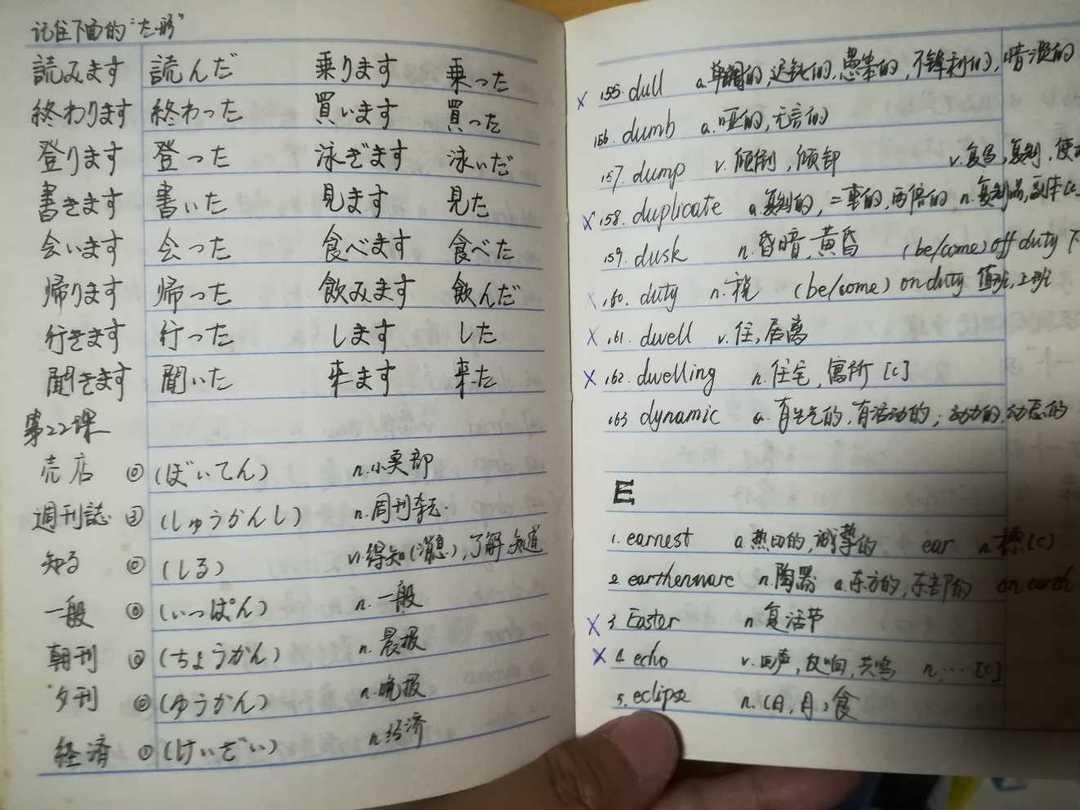 记住下面的"た形"
読みます 読んだ 乗ります 乗った
終わります 終わった 買います 買った
登ります 登った 泳ぎます 泳いだ
書きます 書いた 見ます 見た
会います 会った 食べます 食べた
帰ります 帰った 飲みます 飲んだ
行きます 行った します した
聞きます 聞いた 来ます 来た
第22课
売店 ⓪ (ばいてん) n.小卖部
週刊誌 ③ (しゅうかんし) n.周刊杂志
知る ⓪ (しる) v.得知(消息),了解,知道
一般 ⓪ (いっぱん) n.一般
朝刊 ⓪ (ちょうかん) n.晨报
夕刊 ⓪ (ゆうかん) n.晚报
経済 ① (けいざい) n.经济
x 155. dull a.单调的,迟钝的,愚笨的,不锋利的,暗淡的
156. dumb a.哑的,无言的
157. dump v.倾倒,倾卸 v.复写,复制,使
x 158. duplicate a.复制的,二重的,两倍的 n.复制品,副本
159. dusk n.昏暗,黄昏 (be/come) off duty 下
x 160. duty n.税 (be/come) on duty 值班,上班
x 161. dwell v.住,居
x 162. dwelling n.住宅,寓所 [C]
163 dynamic a.有生气的,有活动的;动力的,动态的
E
1. earnest a.热切的,诚挚的 ear n. [C]
2 earthenware n.陶器 a.东方的,东部的 on earth
x 3. Easter n.复活节
x 4. echo v.回声,反响,共鸣 n.… [C]
5. eclipse n.(日,月)食